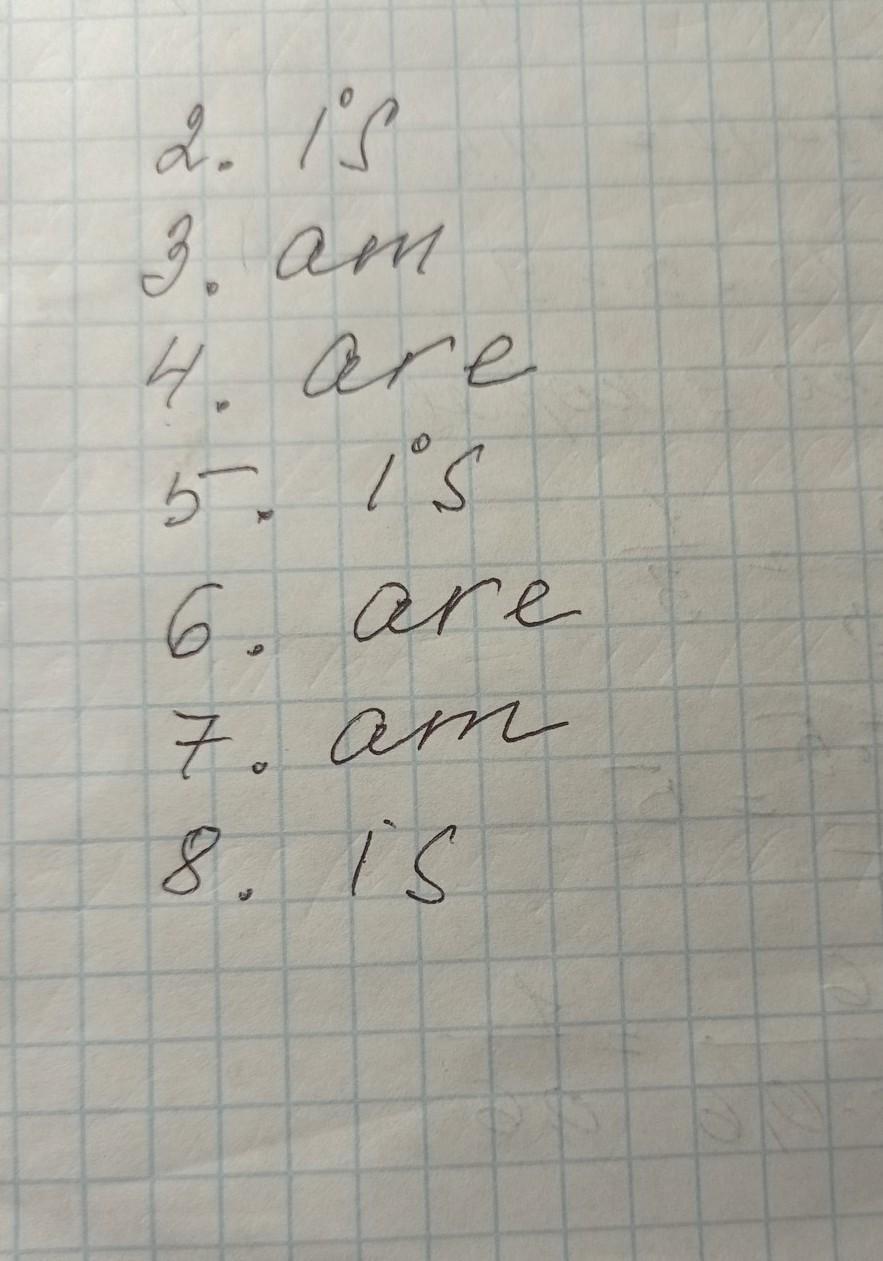 2. is
3. am
4. are
5. is
6. are
7. am
8. is